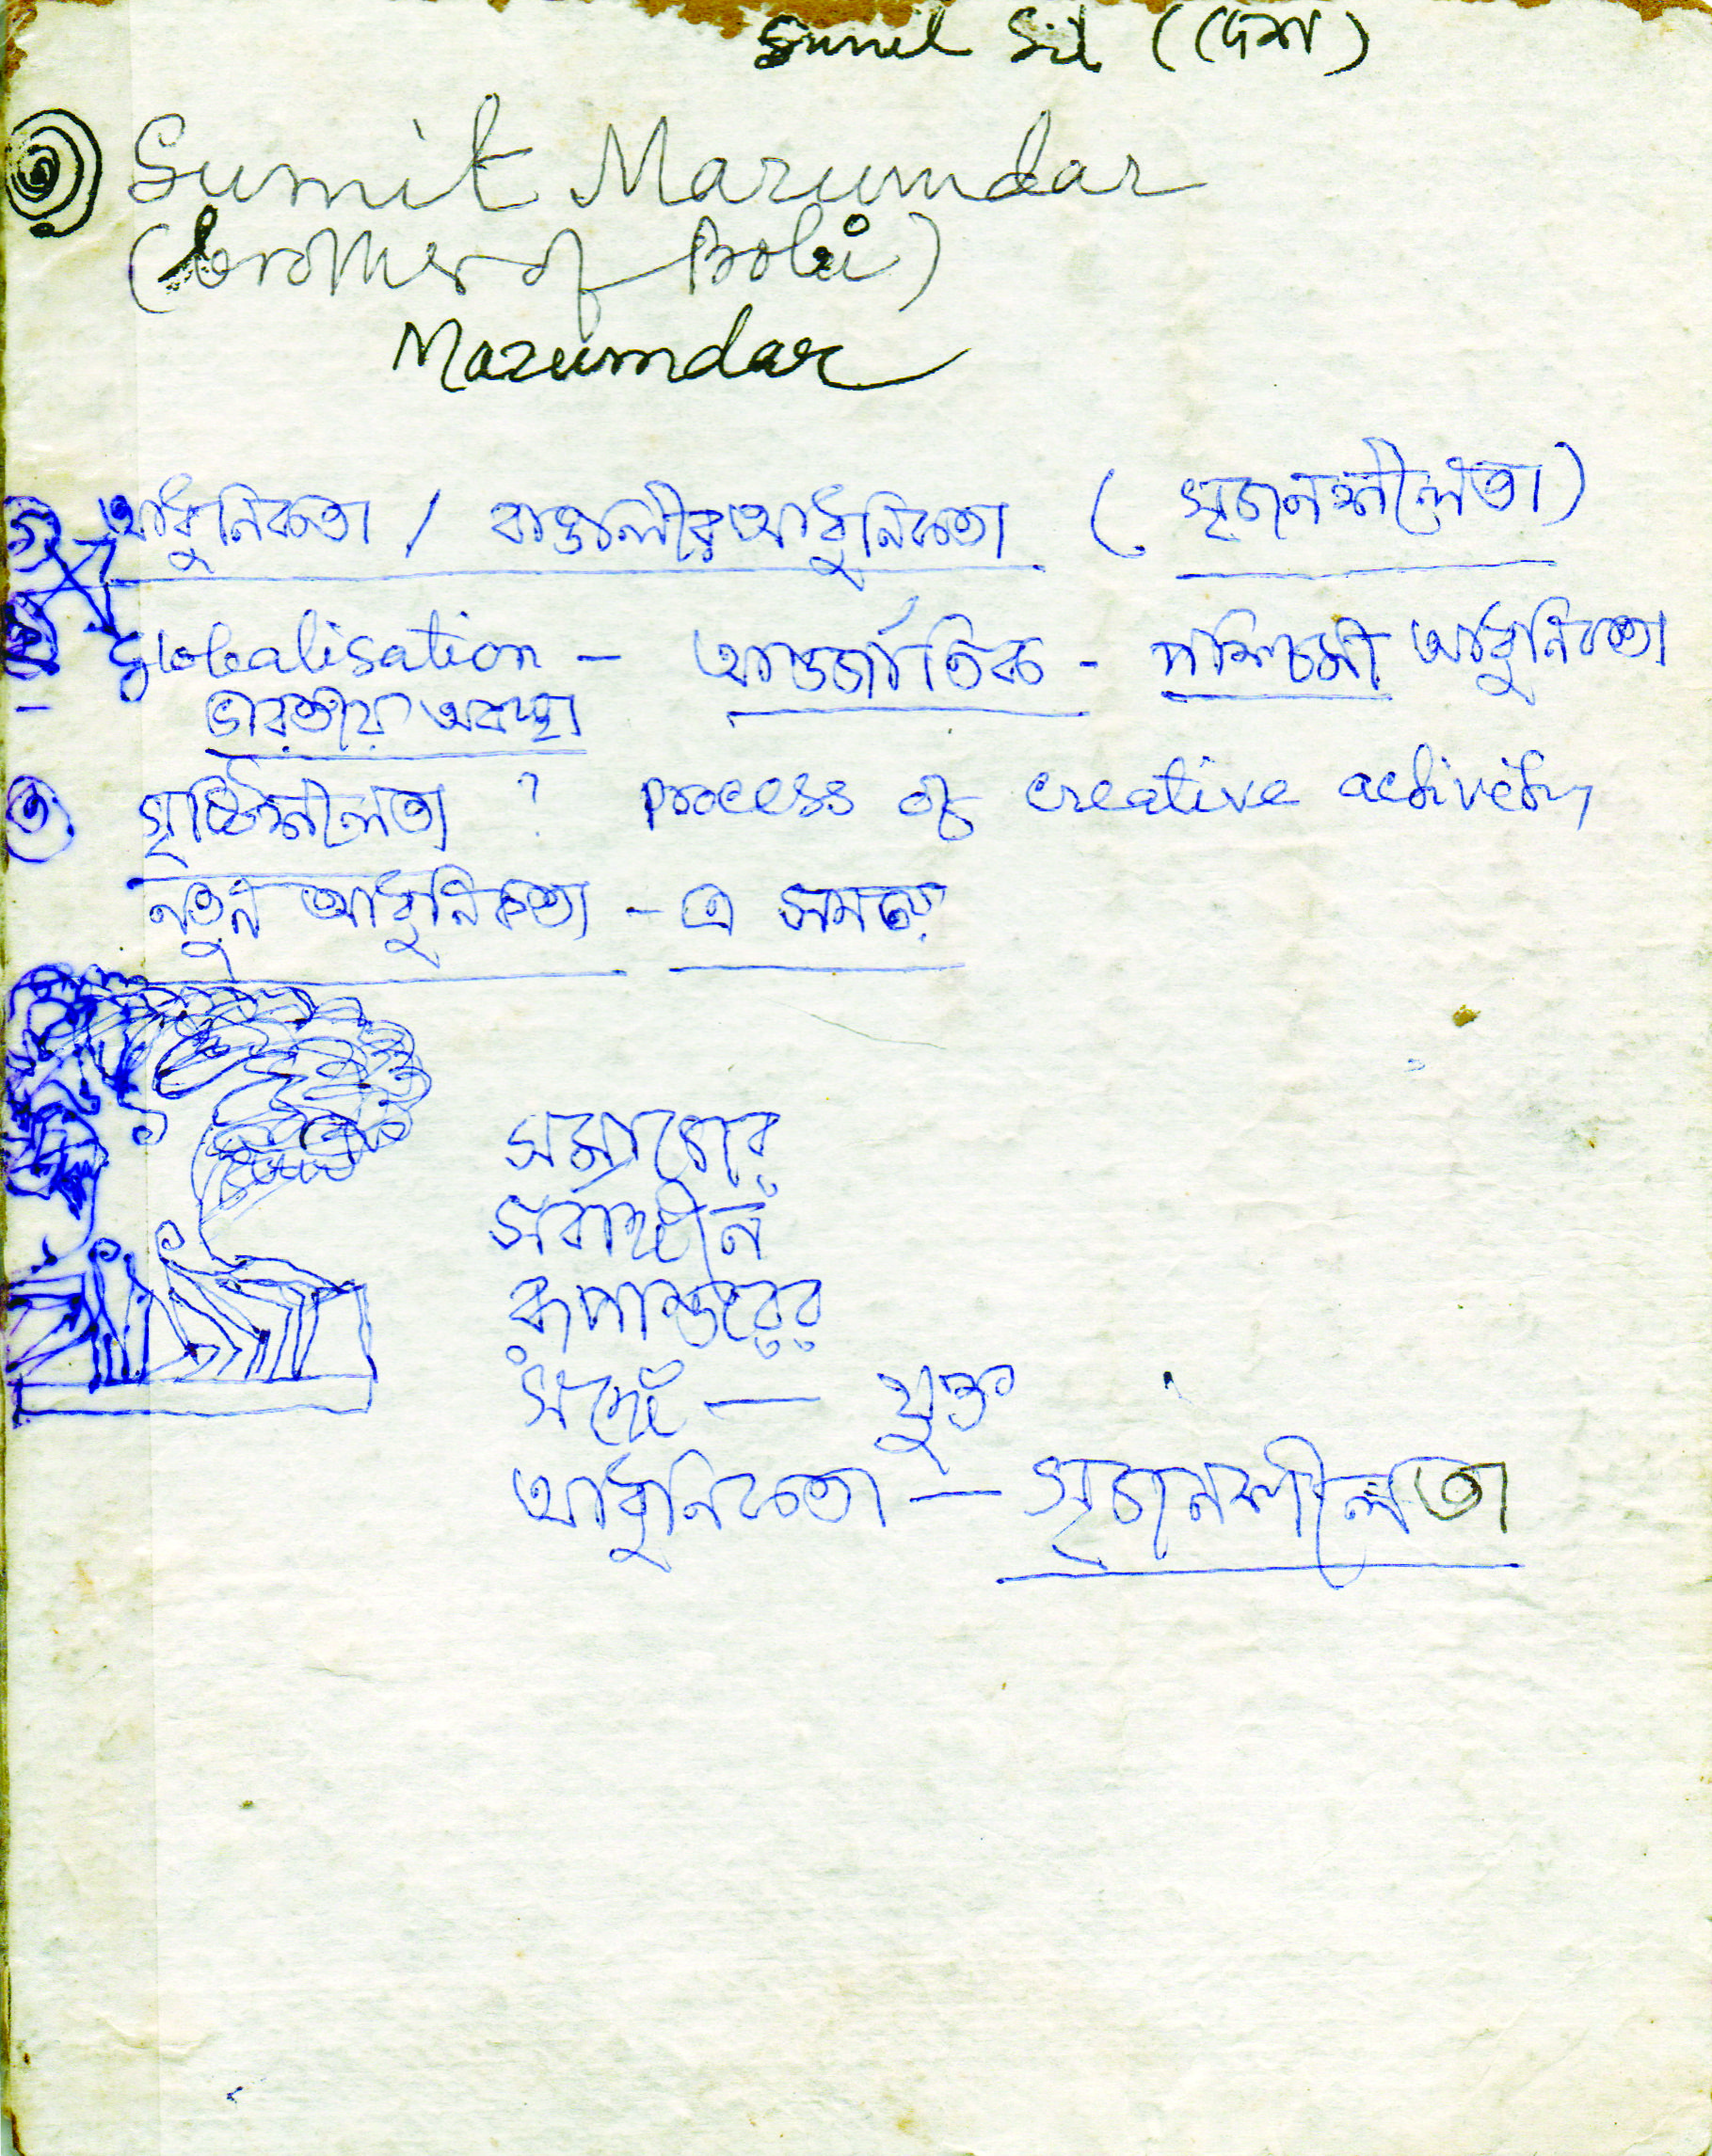 Sunil Sil (দেশ)
Sumit Mazumdar
(brother of Bobi)
Mazumdar
আধুনিকতা / বাঙালীর আধুনিকতা (সৃজনশীলতা)
Globalisation – আন্তর্জাতিক - পশ্চিমী আধুনিকতা
ভারতীয় অবস্থা
৩ সৃষ্টিশীলতা ? Process of creative activity
নতুন আধুনিকতা – এ সময়
সমাজের
সর্বাঙ্গীন
রূপান্তরের
সঙ্গে — যুক্ত
আধুনিকতা — সৃজনশীলতা